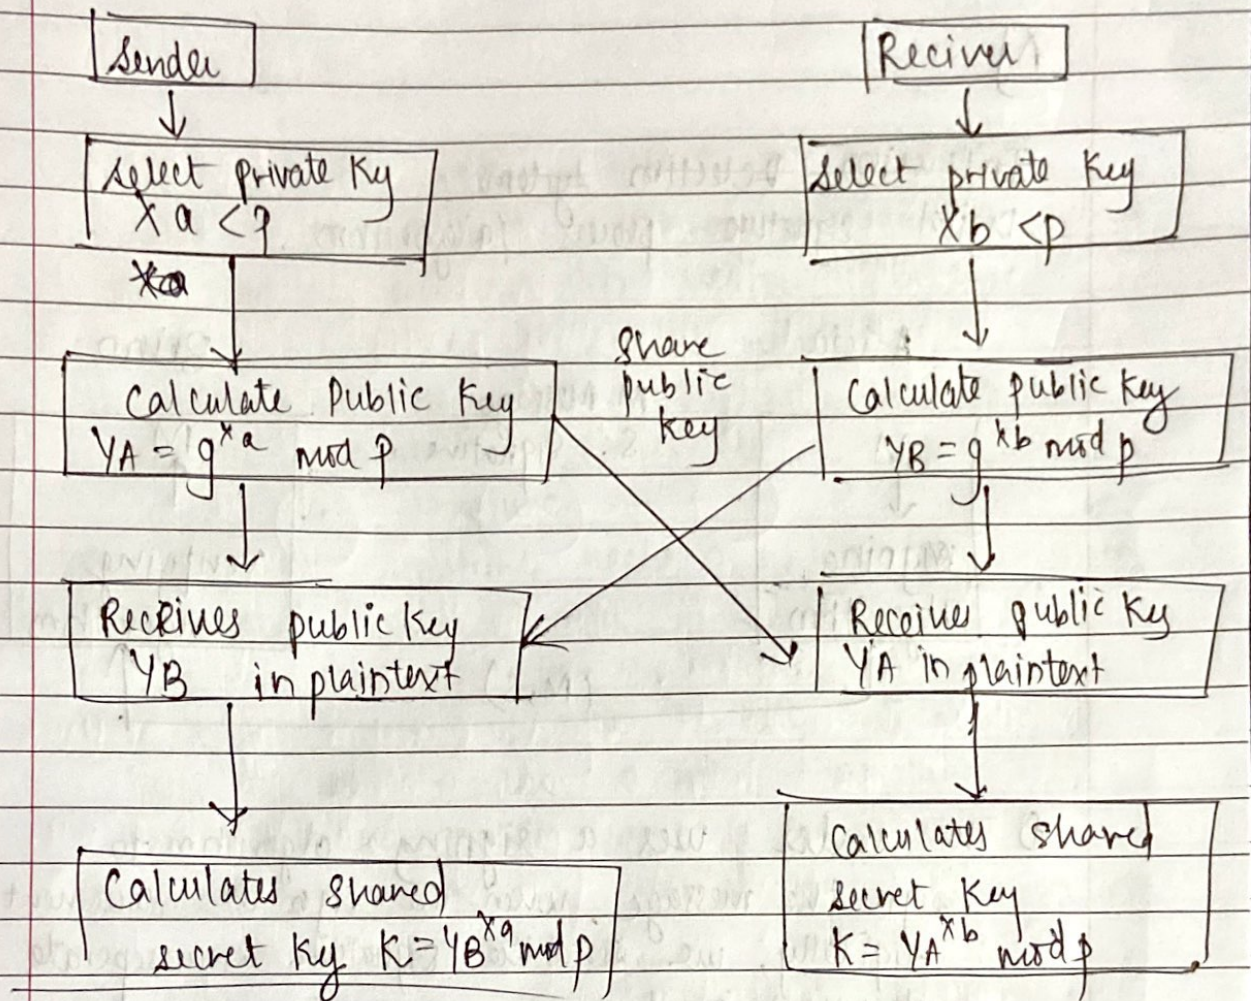 Sender
Select private Key
Xa < p
Xa
Calculate Public Key
YA = g^xa mod p
Receives public Key
YB in plaintext
Calculates shared
secret Key K = YB^xa mod p
share
public
key
Reciver
Select private Key
Xb < p
Calculate public Key
YB = g^xb mod p
Receives public Key
YA in plaintext
Calculates shared
secret Key
K = YA^xb mod p